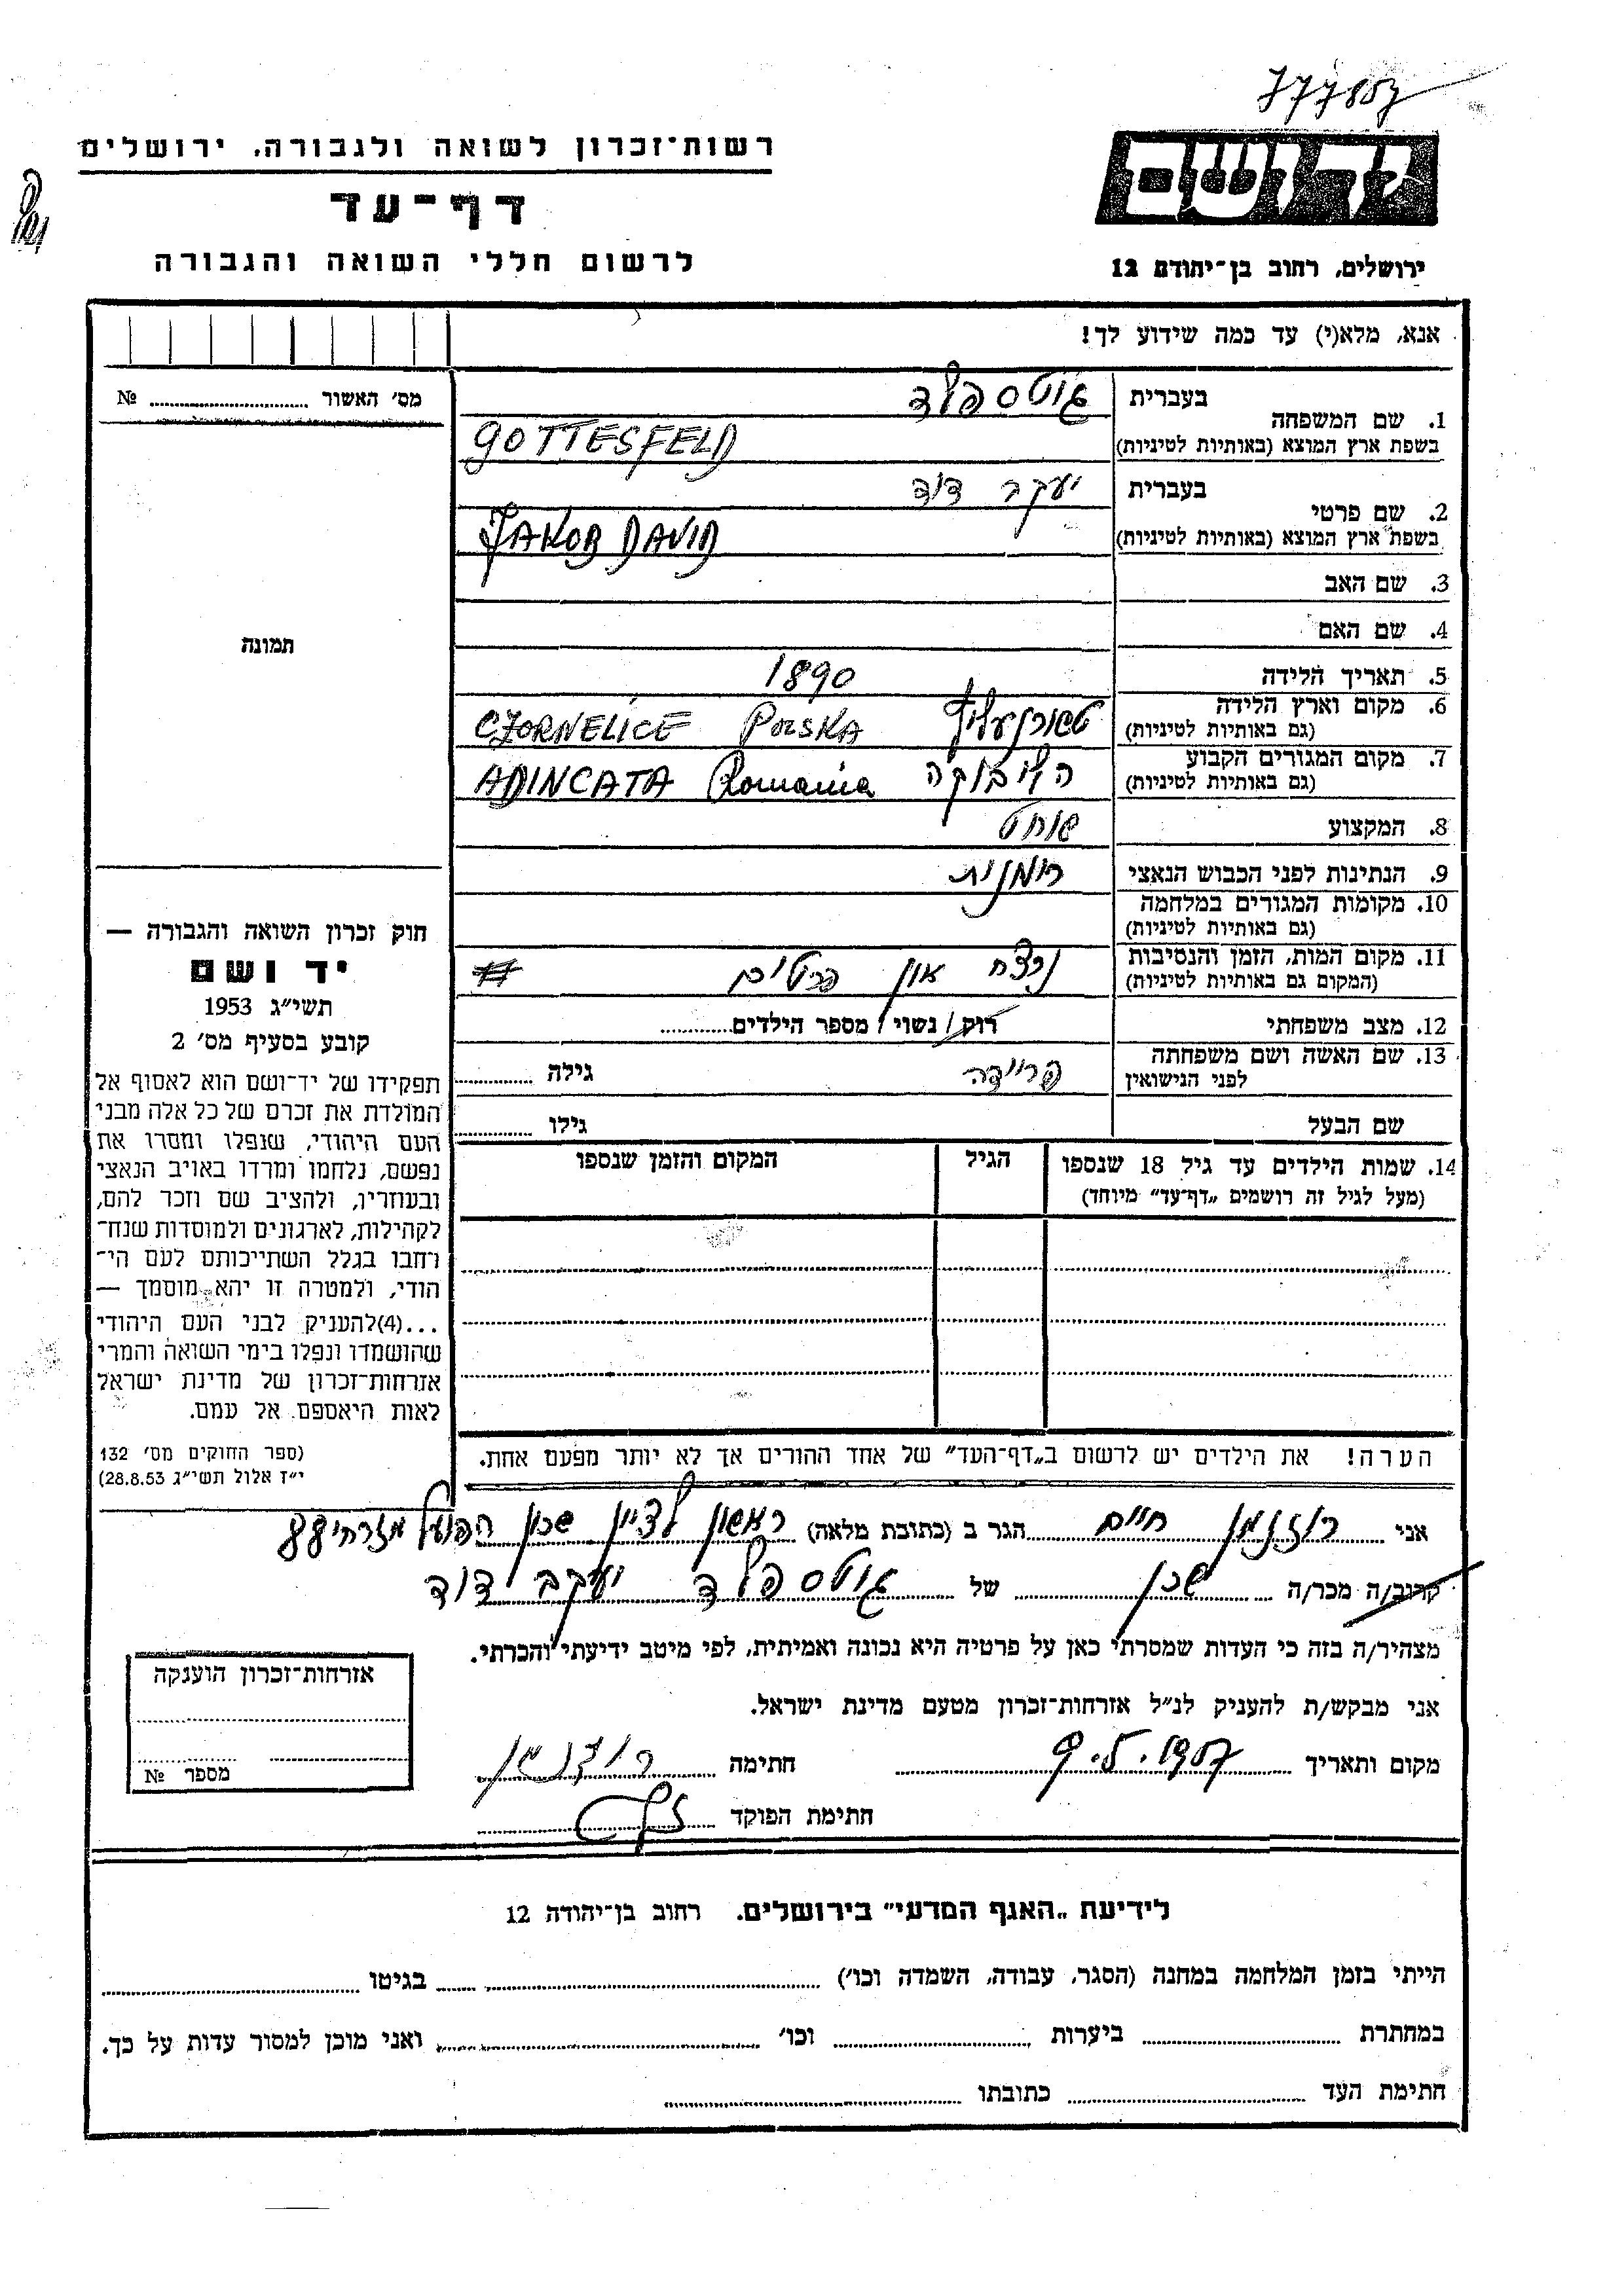 777857
רשות־זכרון לשואה ולגבורה, ירושלים
ידושם
דף־עד
לרשום חללי השואה והגבורה
ירושלים, רחוב בן־יהודה 12
אנא, מלא(י) עד כמה שידוע לך!
מס׳ האשור № 
1. שם המשפחה בעברית גוטספלד
בשפת ארץ המוצא (באותיות לטיניות) GOTTESFELD
2. שם פרטי בעברית יעקב דוד
בשפת ארץ המוצא (באותיות לטיניות) JAKOB DAVID
3. שם האב
4. שם האם
תמונה
5. תאריך הלידה 1890
6. מקום וארץ הלידה (גם באותיות לטיניות) CZORNELICE POLSKA
7. מקום המגורים הקבוע (גם באותיות לטיניות) הליבוקה ADINCATA Romania
8. המקצוע שוחט
9. הנתינות לפני הכבוש הנאצי רומנית
10. מקומות המגורים במלחמה (גם באותיות לטיניות)
11. מקום המות, הזמן והנסיבות (המקום גם באותיות לטיניות) נרצח אין פרטים #
12. מצב משפחתי רווק / נשוי / מספר הילדים
13. שם האשה ושם משפחתה לפני הנישואין פריידה גילה
שם הבעל גילו
14. שמות הילדים עד גיל 18 שנספו הגיל המקום והזמן שנספו
(מעל לגיל זה רושמים „דף־עד” מיוחד)
חוק זכרון השואה והגבורה —
יד ושם
תשי״ג 1953
קובע בסעיף מס׳ 2
תפקידו של יד־ושם הוא לאסוף אל
המולדת את זכרם של כל אלה מבני
העם היהודי, שנפלו ומסרו את
נפשם, נלחמו ומרדו באויב הנאצי
ובעוזריו, ולהציב שם וזכר להם,
לקהילות, לארגונים ולמוסדות שנח־
רחבו בגלל השתייכותם לעם הי־
הודי, ולמטרה זו יהא מוסמך —
...(4)להעניק לבני העם היהודי
שהושמדו ונפלו בימי השואה והמרי
אזרחות־זכרון של מדינת ישראל
לאות היאספם אל עמם.
(ספר החוקים מס׳ 132
י״ז אלול תשי״ג 28.8.53)
הערה! את הילדים יש לרשום ב„דף־העד” של אחד ההורים אך לא יותר מפעם אחת.
אני רוזנמן חיים הגר ב (כתובת מלאה) ראשון לציון שכון הפועל מזרחי
קרוב/ה מכר/ה שכן של גוטספלד יעקב דוד
מצהיר/ה בזה כי העדות שמסרתי כאן על פרטיה היא נכונה ואמיתית, לפי מיטב ידיעתי והכרתי.
אני מבקש/ת להעניק לנ״ל אזרחות־זכרון מטעם מדינת ישראל.
מקום ותאריך חתימה רוזנמן
חתימת הפוקד
אזרחות־זכרון הוענקה
מספר №
לידיעת „האגף המדעי” בירושלים. רחוב בן־יהודה 12
הייתי בזמן המלחמה במחנה (הסגר, עבודה, השמדה וכו׳) בגיטו
במחתרת ביערות וכו׳ ואני מוכן למסור עדות על כך.
חתימת העד כתובתו